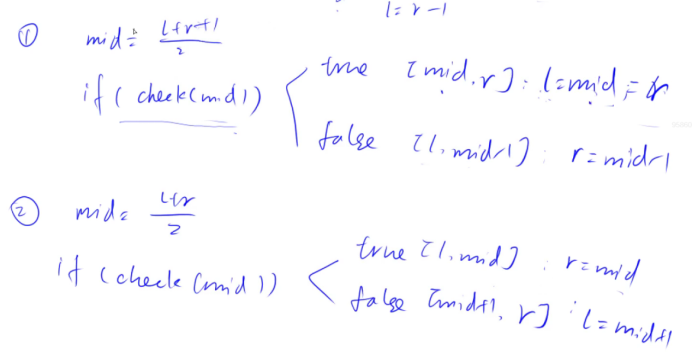 l = r - 1
① mid = l+r+1 / 2
if ( check(mid) )
true [mid, r] : l = mid = r
false [l, mid-1] : r = mid-1
② mid = l+r / 2
if (check(mid))
true [l, mid] : r = mid
false [mid+1, r] : l = mid+1